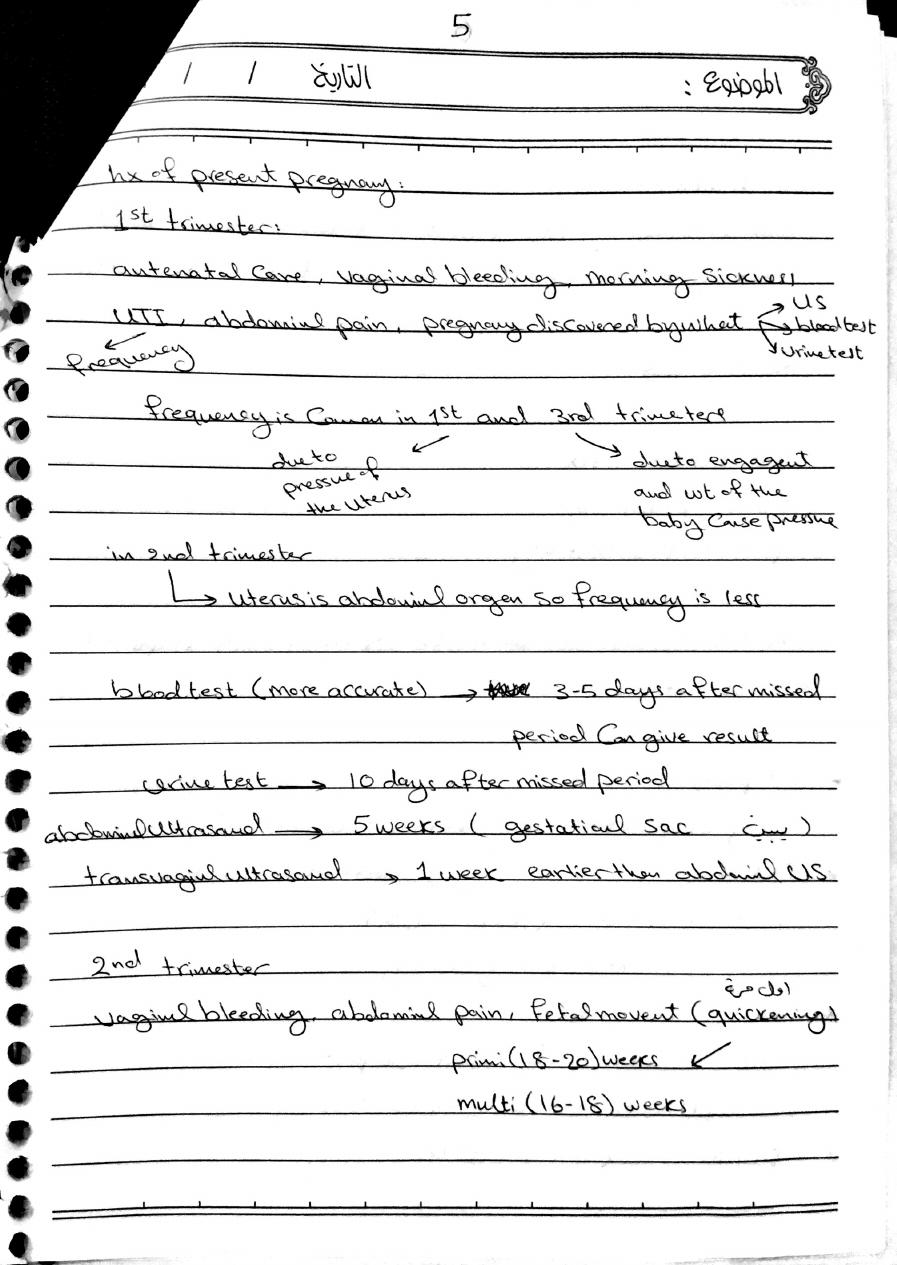 5
الموضوع :
التاريخ / /
hx of present pregnany:
1st trimester:
antenatal Care, vaginal bleeding, morning Sickness
UTI, abdominl pain, pregnany discovered by what
US
blood test
urine test
frequency
frequency is Comon in 1st and 3rd trimeters
due to pressure of the uterus
due to engagent and wt of the baby Cause pressure
in 2nd trimester
uterus is abdominl organ so frequency is less
blood test (more accurate) → 3-5 days after missed
period Can give result
urine test → 10 days after missed period
abdominl ultrasound → 5 weeks ( gestational sac يبين )
transvaginl ultrasound → 1 week earlier then abdominl US
2nd trimester
اول مرة
vaginl bleeding, abdominl pain, fetal movent (quickening)
primi (18-20) weeks
multi (16-18) weeks